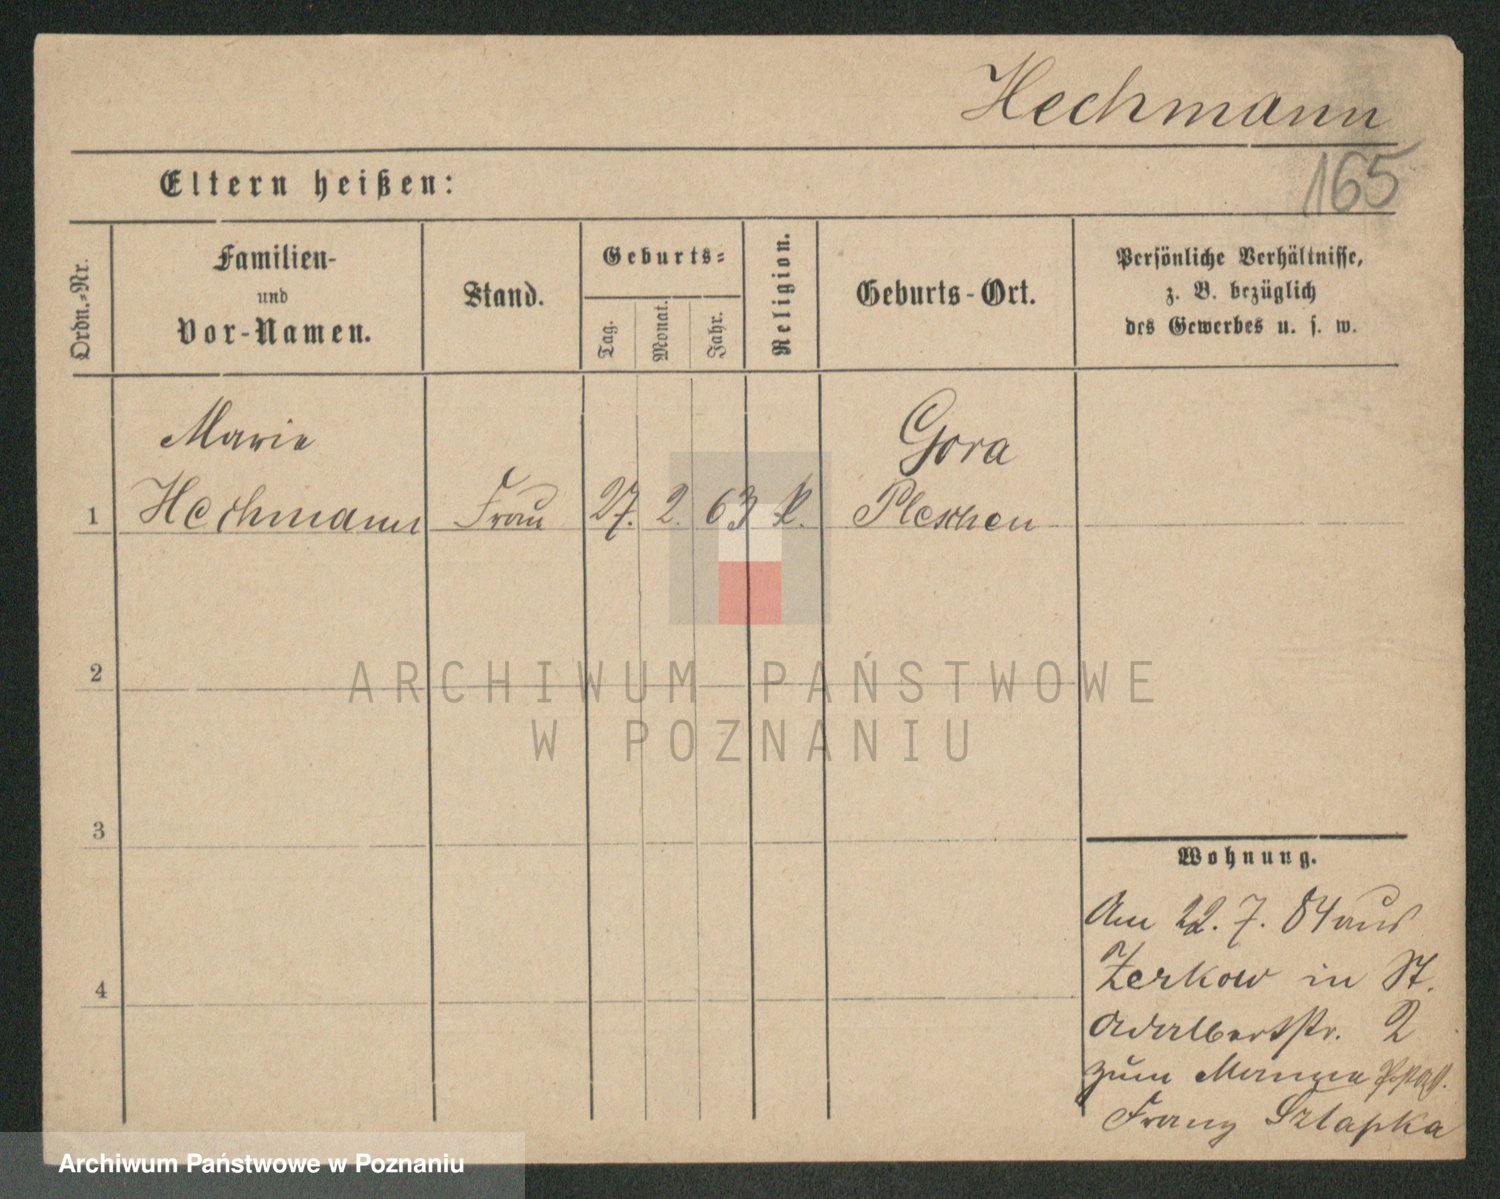 Hechmann
165
Eltern heißen:
Ordn.-Nr.
Familien-
und
Vor-Namen.
Stand.
Geburts-
Tag.
Monat.
Jahr.
Religion.
Geburts-Ort.
Persönliche Verhältnisse,
z. B. bezüglich
des Gewerbes u. s. w.
Marie
Gora
1 Hechmann Frau 27. 2. 63 k. Pleschen
2
3
4
Wohnung.
Am 22. 7. 84 aus
Zerkow in St.
Adalbertstr. 2
zum Manne
Franz Szlapka
ARCHIWUM PAŃSTWOWE
W POZNANIU
Archiwum Państwowe w Poznaniu